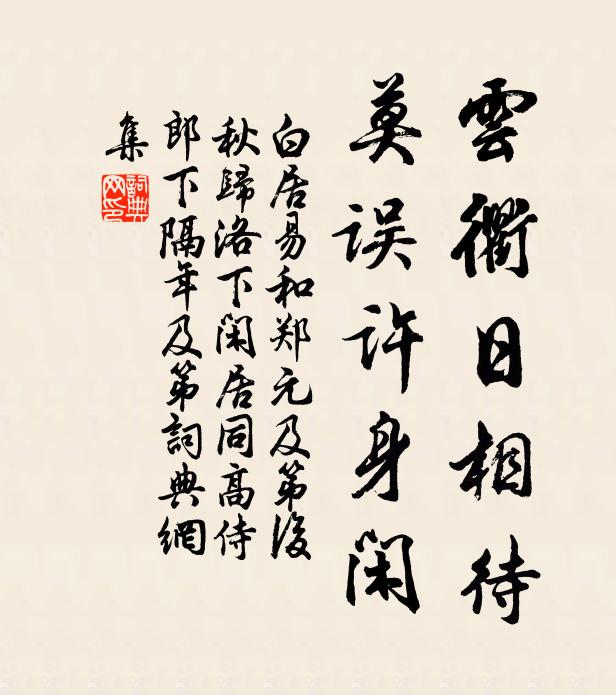 雲衢日相待
莫误许身閑
白居易和郑元及第後
秋歸洛下閑居同高侍
郎下隔年及第詞典網
集
詞典
网印